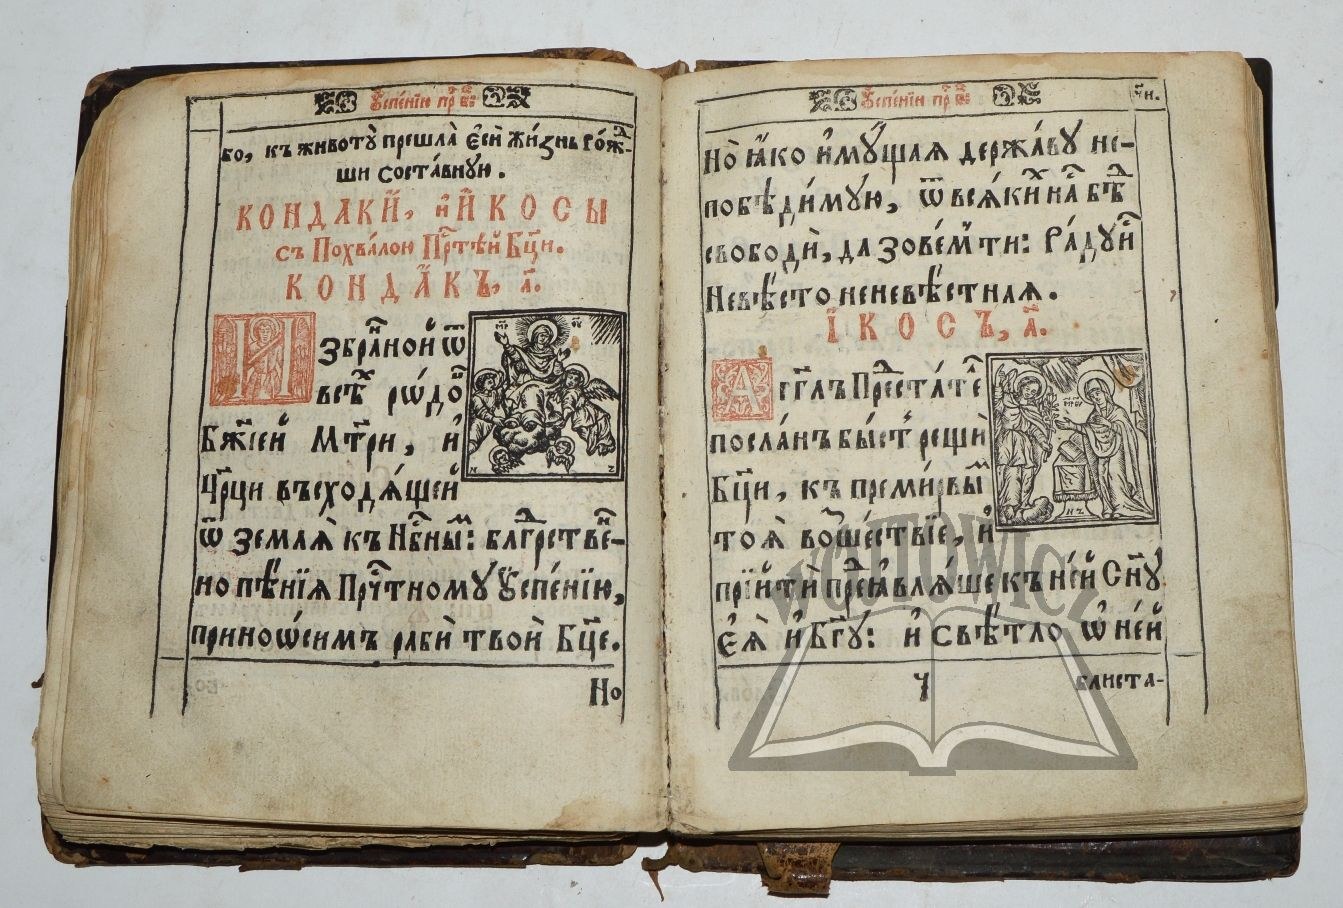 Ѹспе́нїю прⷭ҇ Бц҃ы
бо, къ животꙋ̀ прешла̀ є҆сѝ Жи́знь Ро́ждⷣ-
ши соста́внꙋю.
КОНДАКЍ, и҆ І҆́КОСЫ
съ Похва́лою Прⷭ҇тѣ́й Бц҃и.
КОНДА́КЪ, а҃.
И
Збра́нной ѿ
всѣ́хъ рѡдѡ́въ
Бж҃їей Мт҃ри, и҆
Цр҃ци въсходѧ́щей
ѿ землѧ̀ къ Нб҃нымъ: блгⷣрстве́н-
но пѣ́нїѧ Прⷭ҇тномꙋ Ѹ҆спе́нїю,
прино́симъ рабѝ твоѝ Бц҃е.
Но
Ѹспе́нїю прⷭ҇ Бц҃ы
чи.
Но̀ ꙗ҆́ко и҆мꙋ́щаѧ держа́вꙋ не-
побѣди́мꙋю, ѿ всѧ́кихъ на́съ бѣ́дъ
свободѝ, да зове́мъ ти: Ра́дꙋйсѧ
Невѣ́сто неневѣ́стнаѧ.
І҆́КОСЪ, а҃.
А
гг҃лъ Предста́тель
по́сланъ бы́сть рещѝ
Бц҃и, къ преми́рнымъ
тоѧ̀ во́шествїе, и҆
прїитѝ преꙗ҆влѧ́ѧще къ не́й Сн҃ꙋ
Є҆ѧ̀ и҆ Бг҃ꙋ: и҆ свѣ́тло ѡ҆ не́й
Ч
блиста-
WOJTOWICZ